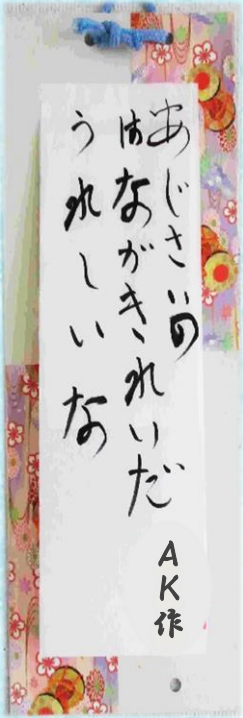 あじさいの
はながきれいだ
うれしいな
AK作